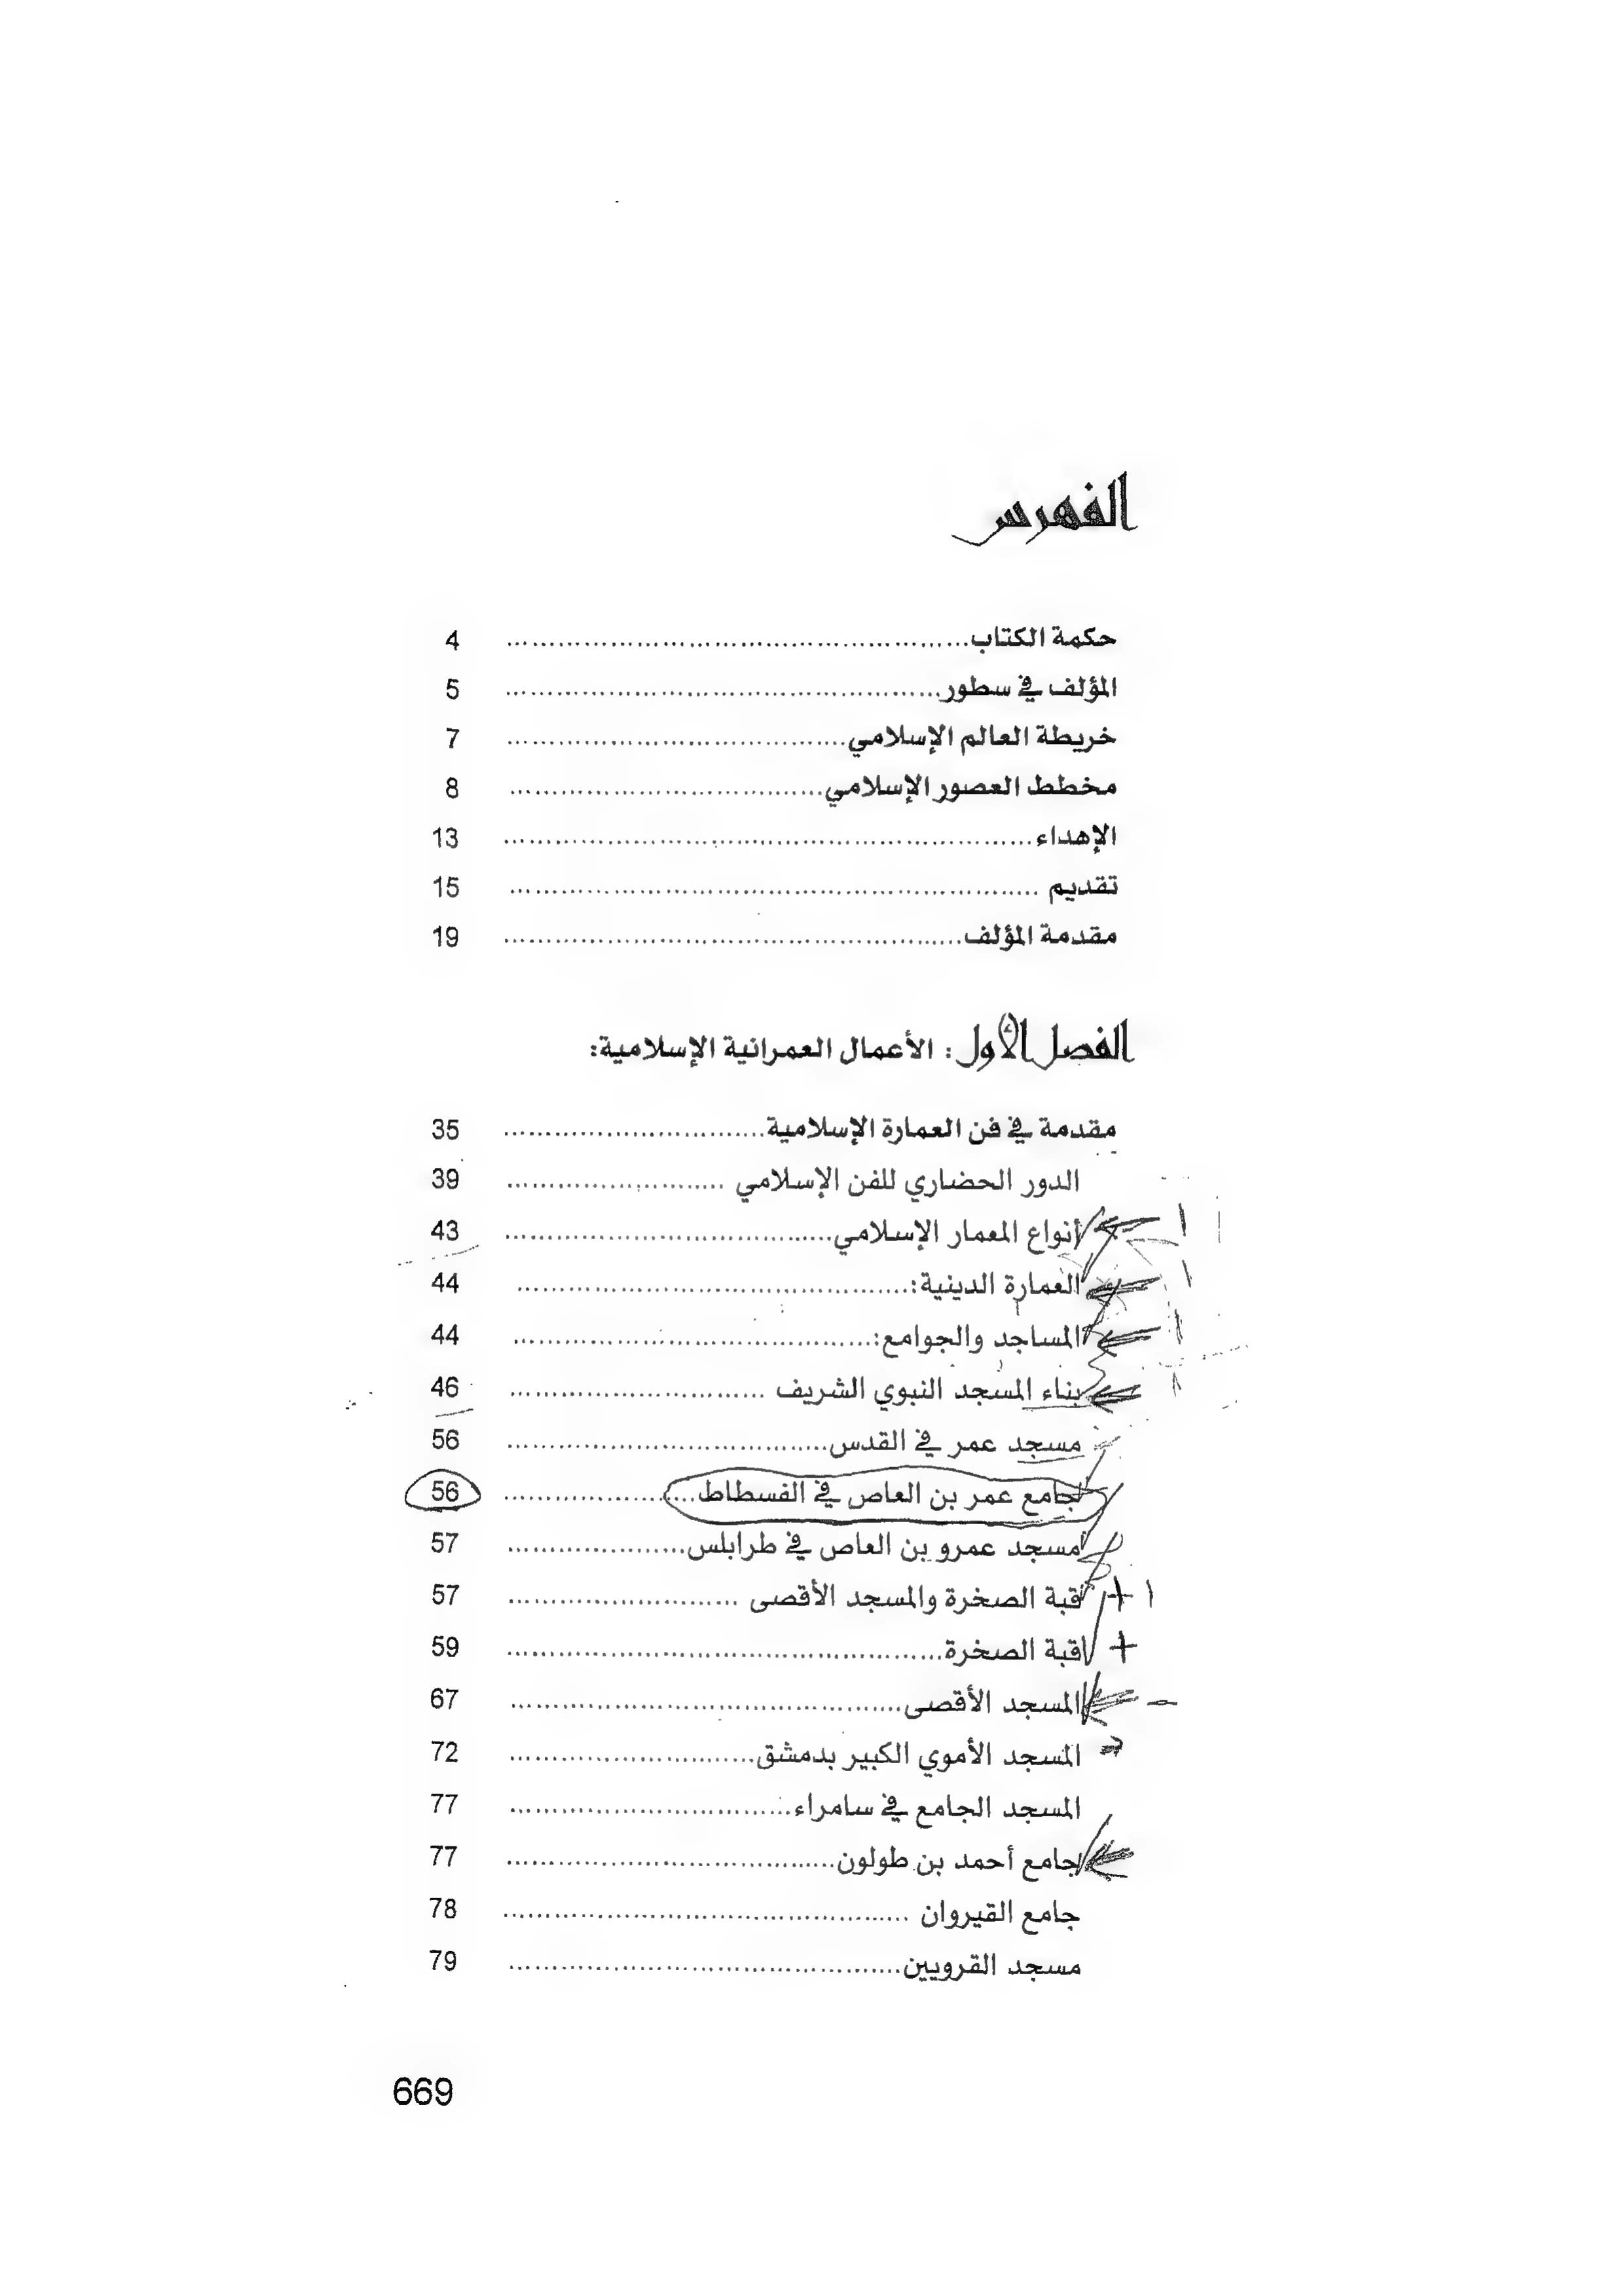 الفهرس
حكمة الكتاب................................................ 4
المؤلف في سطور................................................ 5
خريطة العالم الإسلامي................................................ 7
مخطط العصور الإسلامي................................................ 8
الإهداء................................................ 13
تقديم ................................................ 15
مقدمة المؤلف................................................ 19
الفصل الأول : الأعمال العمرانية الإسلامية:
مقدمة في فن العمارة الإسلامية.............................. 35
الدور الحضاري للفن الإسلامي .............................. 39
أنواع المعمار الإسلامي.............................. 43
العمارة الدينية:.............................. 44
المساجد والجوامع:.............................. 44
بناء المسجد النبوي الشريف .............................. 46
مسجد عمر في القدس.............................. 56
جامع عمر بن العاص في الفسطاط.................... 56
مسجد عمرو بن العاص في طرابلس.................... 57
قبة الصخرة والمسجد الأقصى .............................. 57
قبة الصخرة.............................. 59
المسجد الأقصى.............................. 67
المسجد الأموي الكبير بدمشق.............................. 72
المسجد الجامع في سامراء.............................. 77
جامع أحمد بن طولون.............................. 77
جامع القيروان .............................. 78
مسجد القرويين.............................. 79
669